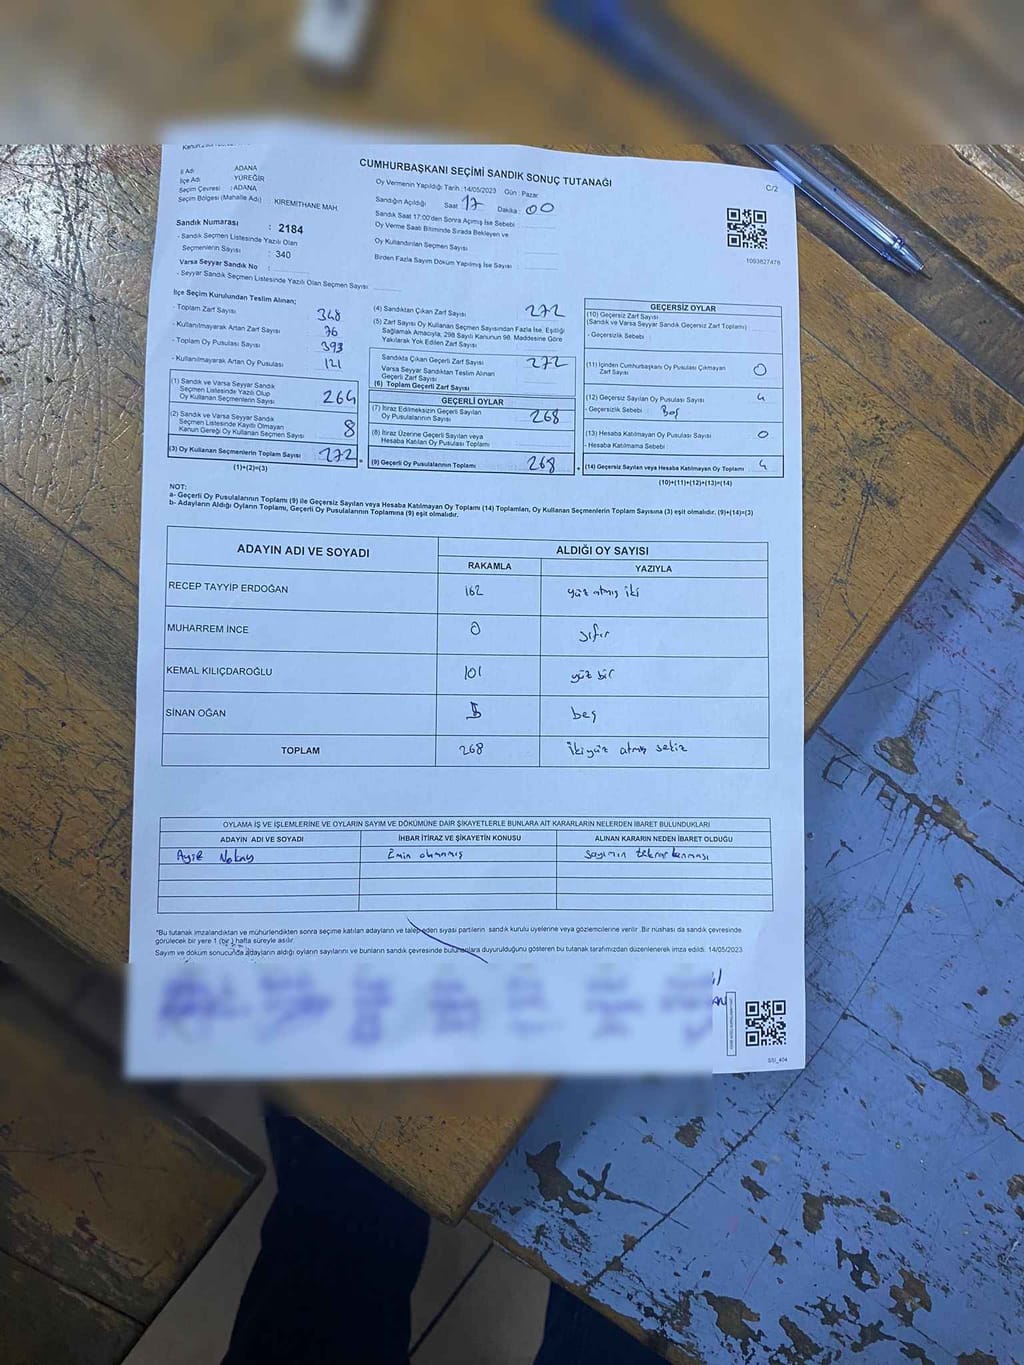 CUMHURBAŞKANI SEÇİMİ SANDIK SONUÇ TUTANAĞI
C/2
İl Adı ADANA
İlçe Adı : YÜREĞİR
Seçim Çevresi : ADANA
Seçim Bölgesi (Mahalle Adı) : KİREMİTHANE MAH.
Oy Vermenin Yapıldığı Tarih : 14/05/2023 Gün : Pazar
Sandığın Açıldığı Saat 17 Dakika : 00
Sandık Saat 17:00'den Sonra Açımış İse Sebebi :
Oy Verme Saati Bitiminde Sırada Bekleyen ve
Oy Kullandırılan Seçmen Sayısı
Birden Fazla Sayım Döküm Yapılmış İse Sayısı :
1093827476
Sandık Numarası : 2184
- Sandık Seçmen Listesinde Yazılı Olan
Seçmenlerin Sayısı : 340
Varsa Seyyar Sandık No :
- Seyyar Sandık Seçmen Listesinde Yazılı Olan Seçmen Sayısı
İlçe Seçim Kurulundan Teslim Alınan;
- Toplam Zarf Sayısı 348
- Kullanılmayarak Artan Zarf Sayısı 76
- Toplam Oy Pusulası Sayısı 393
- Kullanılmayarak Artan Oy Pusulası 121
(1) Sandık ve Varsa Seyyar Sandık
Seçmen Listesinde Yazılı Olup
Oy Kullanan Seçmenlerin Sayısı 264
(2) Sandık ve Varsa Seyyar Sandık
Seçmen Listesinde Kayıtlı Olmayan
Kanun Gereği Oy Kullanan Seçmen Sayısı 8
(3) Oy Kullanan Seçmenlerin Toplam Sayısı 272
(1)+(2)=(3)
(4) Sandıktan Çıkan Zarf Sayısı 272
(5) Zarf Sayısı Oy Kullanan Seçmen Sayısından Fazla İse, Eşitliği
Sağlamak Amacıyla, 298 Sayılı Kanunun 98. Maddesine Göre
Yakılarak Yok Edilen Zarf Sayısı
Sandıkta Çıkan Geçerli Zarf Sayısı 272
Varsa Seyyar Sandıktan Teslim Alınan
Geçerli Zarf Sayısı
(6) Toplam Geçerli Zarf Sayısı
GEÇERLİ OYLAR
(7) İtiraz Edilmeksizin Geçerli Sayılan
Oy Pusulalarının Sayısı 268
(8) İtiraz Üzerine Geçerli Sayılan veya
Hesaba Katılan Oy Pusulası Toplamı
(9) Geçerli Oy Pusulalarının Toplamı 268
GEÇERSİZ OYLAR
(10) Geçersiz Zarf Sayısı
(Sandık ve Varsa Seyyar Sandık Geçersiz Zarf Toplamı)
- Geçersizlik Sebebi :
(11) İçinden Cumhurbaşkanı Oy Pusulası Çıkmayan
Zarf Sayısı 0
(12) Geçersiz Sayılan Oy Pusulası Sayısı 4
- Geçersizlik Sebebi : Boş
(13) Hesaba Katılmayan Oy Pusulası Sayısı 0
- Hesaba Katılmama Sebebi :
(14) Geçersiz Sayılan veya Hesaba Katılmayan Oy Toplamı 4
(10)+(11)+(12)+(13)=(14)
NOT:
a- Geçerli Oy Pusulalarının Toplamı (9) ile Geçersiz Sayılan veya Hesaba Katılmayan Oy Toplamı (14) Toplamları, Oy Kullanan Seçmenlerin Toplam Sayısına (3) eşit olmalıdır. (9)+(14)=(3)
b- Adayların Aldığı Oyların Toplamı, Geçerli Oy Pusulalarının Toplamına (9) eşit olmalıdır.
ADAYIN ADI VE SOYADI ALDIĞI OY SAYISI
RAKAMLA YAZIYLA
RECEP TAYYİP ERDOĞAN 162 yüz atmış iki
MUHARREM İNCE 0 sıfır
KEMAL KILIÇDAROĞLU 101 yüz bir
SİNAN OĞAN 5 beş
TOPLAM 268 ikiyüz atmış sekiz
OYLAMA İŞ VE İŞLEMLERİNE VE OYLARIN SAYIM VE DÖKÜMÜNE DAİR ŞİKAYETLERLE BUNLARA AİT KARARLARIN NELERDEN İBARET BULUNDUKLARI
ADAYIN ADI VE SOYADI İHBAR İTİRAZ VE ŞİKAYETİN KONUSU ALINAN KARARIN NEDEN İBARET OLDUĞU
Emin olmamış Sayımın tekrarlanması
*Bu tutanak imzalandıktan ve mühürlendikten sonra seçime katılan adayların ve talep eden siyasi partilerin sandık kurulu üyelerine veya gözlemcilerine verilir. Bir nüshası da sandık çevresinde
görülecek bir yere 1 (bir) hafta süreyle asılır.
Sayım ve döküm sonucunda adayların aldığı oyların sayılarını ve bunların sandık çevresinde bulunanlara duyurulduğunu gösteren bu tutanak tarafımızdan düzenlenerek imza edildi. 14/05/2023